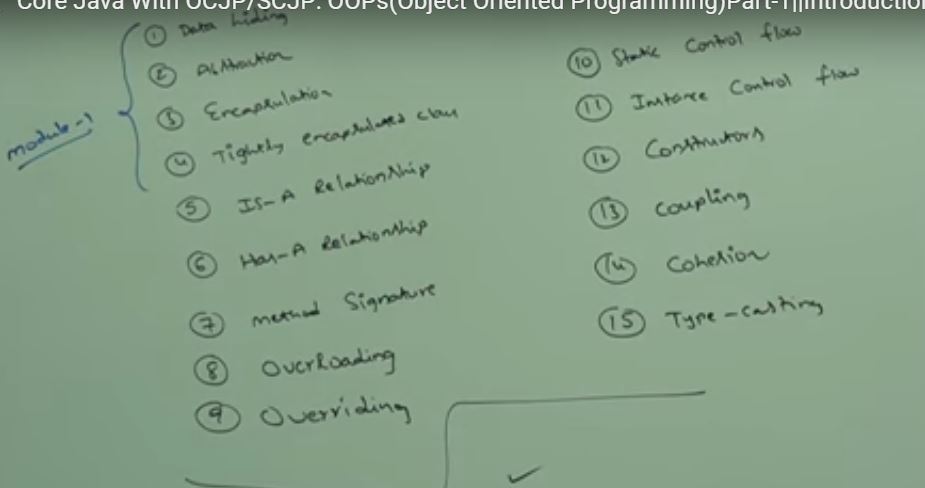 Core Java With OCJP/SCJP: OOPs(Object Oriented Programming)Part-1||introduction
module-1
① Data hiding
② Abstraction
③ Encapsulation
④ Tightly encapsulated class
⑤ IS-A Relationship
⑥ Has-A Relationship
⑦ method Signature
⑧ Overloading
⑨ Overriding
⑩ Static Control flow
⑪ Instance Control flow
⑫ Constructors
⑬ Coupling
⑭ Cohesion
⑮ Type-casting